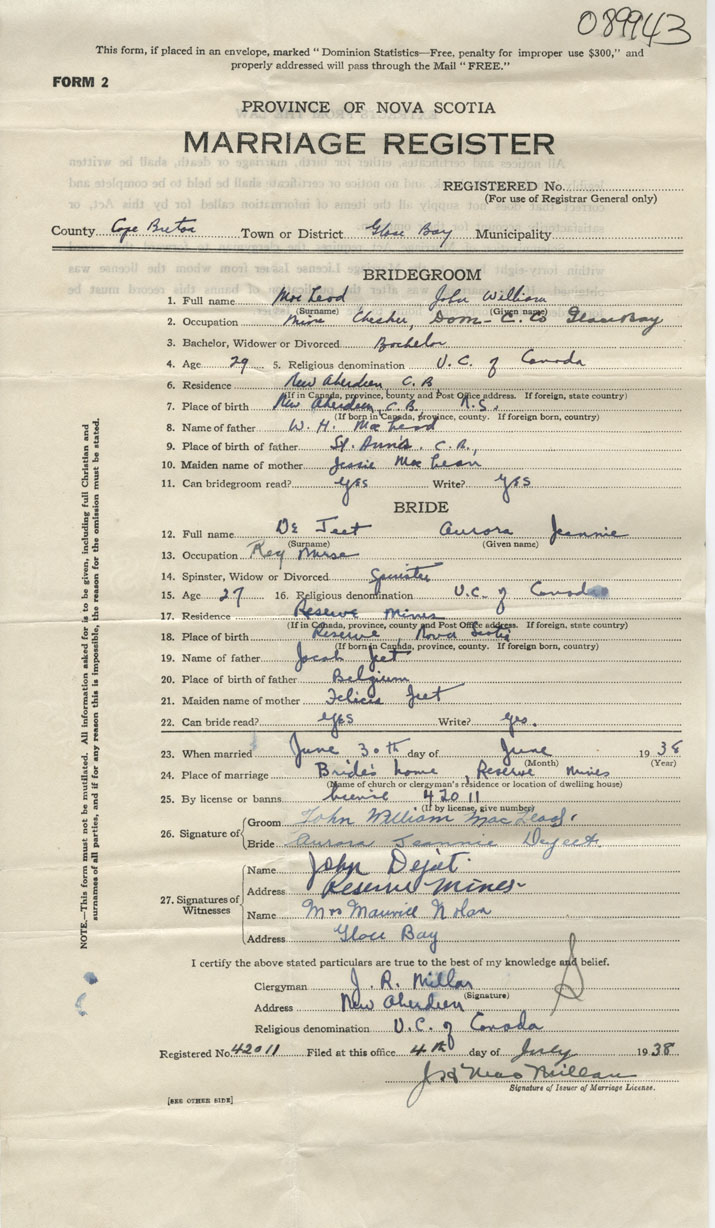 089943
This form, if placed in an envelope, marked "Dominion Statistics—Free, penalty for improper use $300," and
properly addressed will pass through the Mail "FREE."
FORM 2
PROVINCE OF NOVA SCOTIA
MARRIAGE REGISTER
REGISTERED No.
(For use of Registrar General only)
County Cape Breton Town or District Glace Bay Municipality
BRIDEGROOM
1. Full name Mac Leod John William
(Surname) (Given name)
2. Occupation Mine Checker, Dom. C. Co Glace Bay
3. Bachelor, Widower or Divorced Bachelor
4. Age 29 5. Religious denomination U. C. of Canada
6. Residence New Aberdeen, C. B
(If in Canada, province, county and Post Office address. If foreign, state country)
7. Place of birth New Aberdeen, C. B. N. S.
(If born in Canada, province, county. If foreign born, country)
8. Name of father W. H. Mac Leod
9. Place of birth of father St. Ann's C. B.,
10. Maiden name of mother Jessie Mac Lean
11. Can bridegroom read? yes Write? yes
BRIDE
12. Full name De Jeet Aurora Jeannie
(Surname) (Given name)
13. Occupation Reg Nurse
14. Spinster, Widow or Divorced Spinster
15. Age 27 16. Religious denomination U. C. of Canada
17. Residence Reserve Mines
(If in Canada, province, county and Post Office address. If foreign, state country)
18. Place of birth Reserve, Nova Scotia
(If born in Canada, province, county. If foreign born, country)
19. Name of father Jacob Jeet
20. Place of birth of father Belgium
21. Maiden name of mother Felicia Jeet
22. Can bride read? yes Write? yes.
23. When married June 30th day of June 1938
(Month) (Year)
24. Place of marriage Bride's home, Reserve Mines
(Name of church or clergyman's residence or location of dwelling house)
25. By license or banns license 42011
(If by license, give number)
26. Signature of Groom John William MacLeod.
Bride Aurora Jeannie Dejeet
27. Signatures of Witnesses
Name John Dejeet.
Address Reserve Mines
Name Mrs Maurice Nolan
Address Glace Bay
I certify the above stated particulars are true to the best of my knowledge and belief.
Clergyman J. R. Millar
(Signature)
Address New Aberdeen
Religious denomination U. C. of Canada
Registered No. 42011 Filed at this office 4th day of July 1938
J H MacMillan
Signature of Issuer of Marriage License.
[SEE OTHER SIDE]
NOTE.—This form must not be mutilated. All information asked for is to be given, including full Christian and
surnames of all parties, and if for any reason this is impossible, the reason for the omission must be stated.